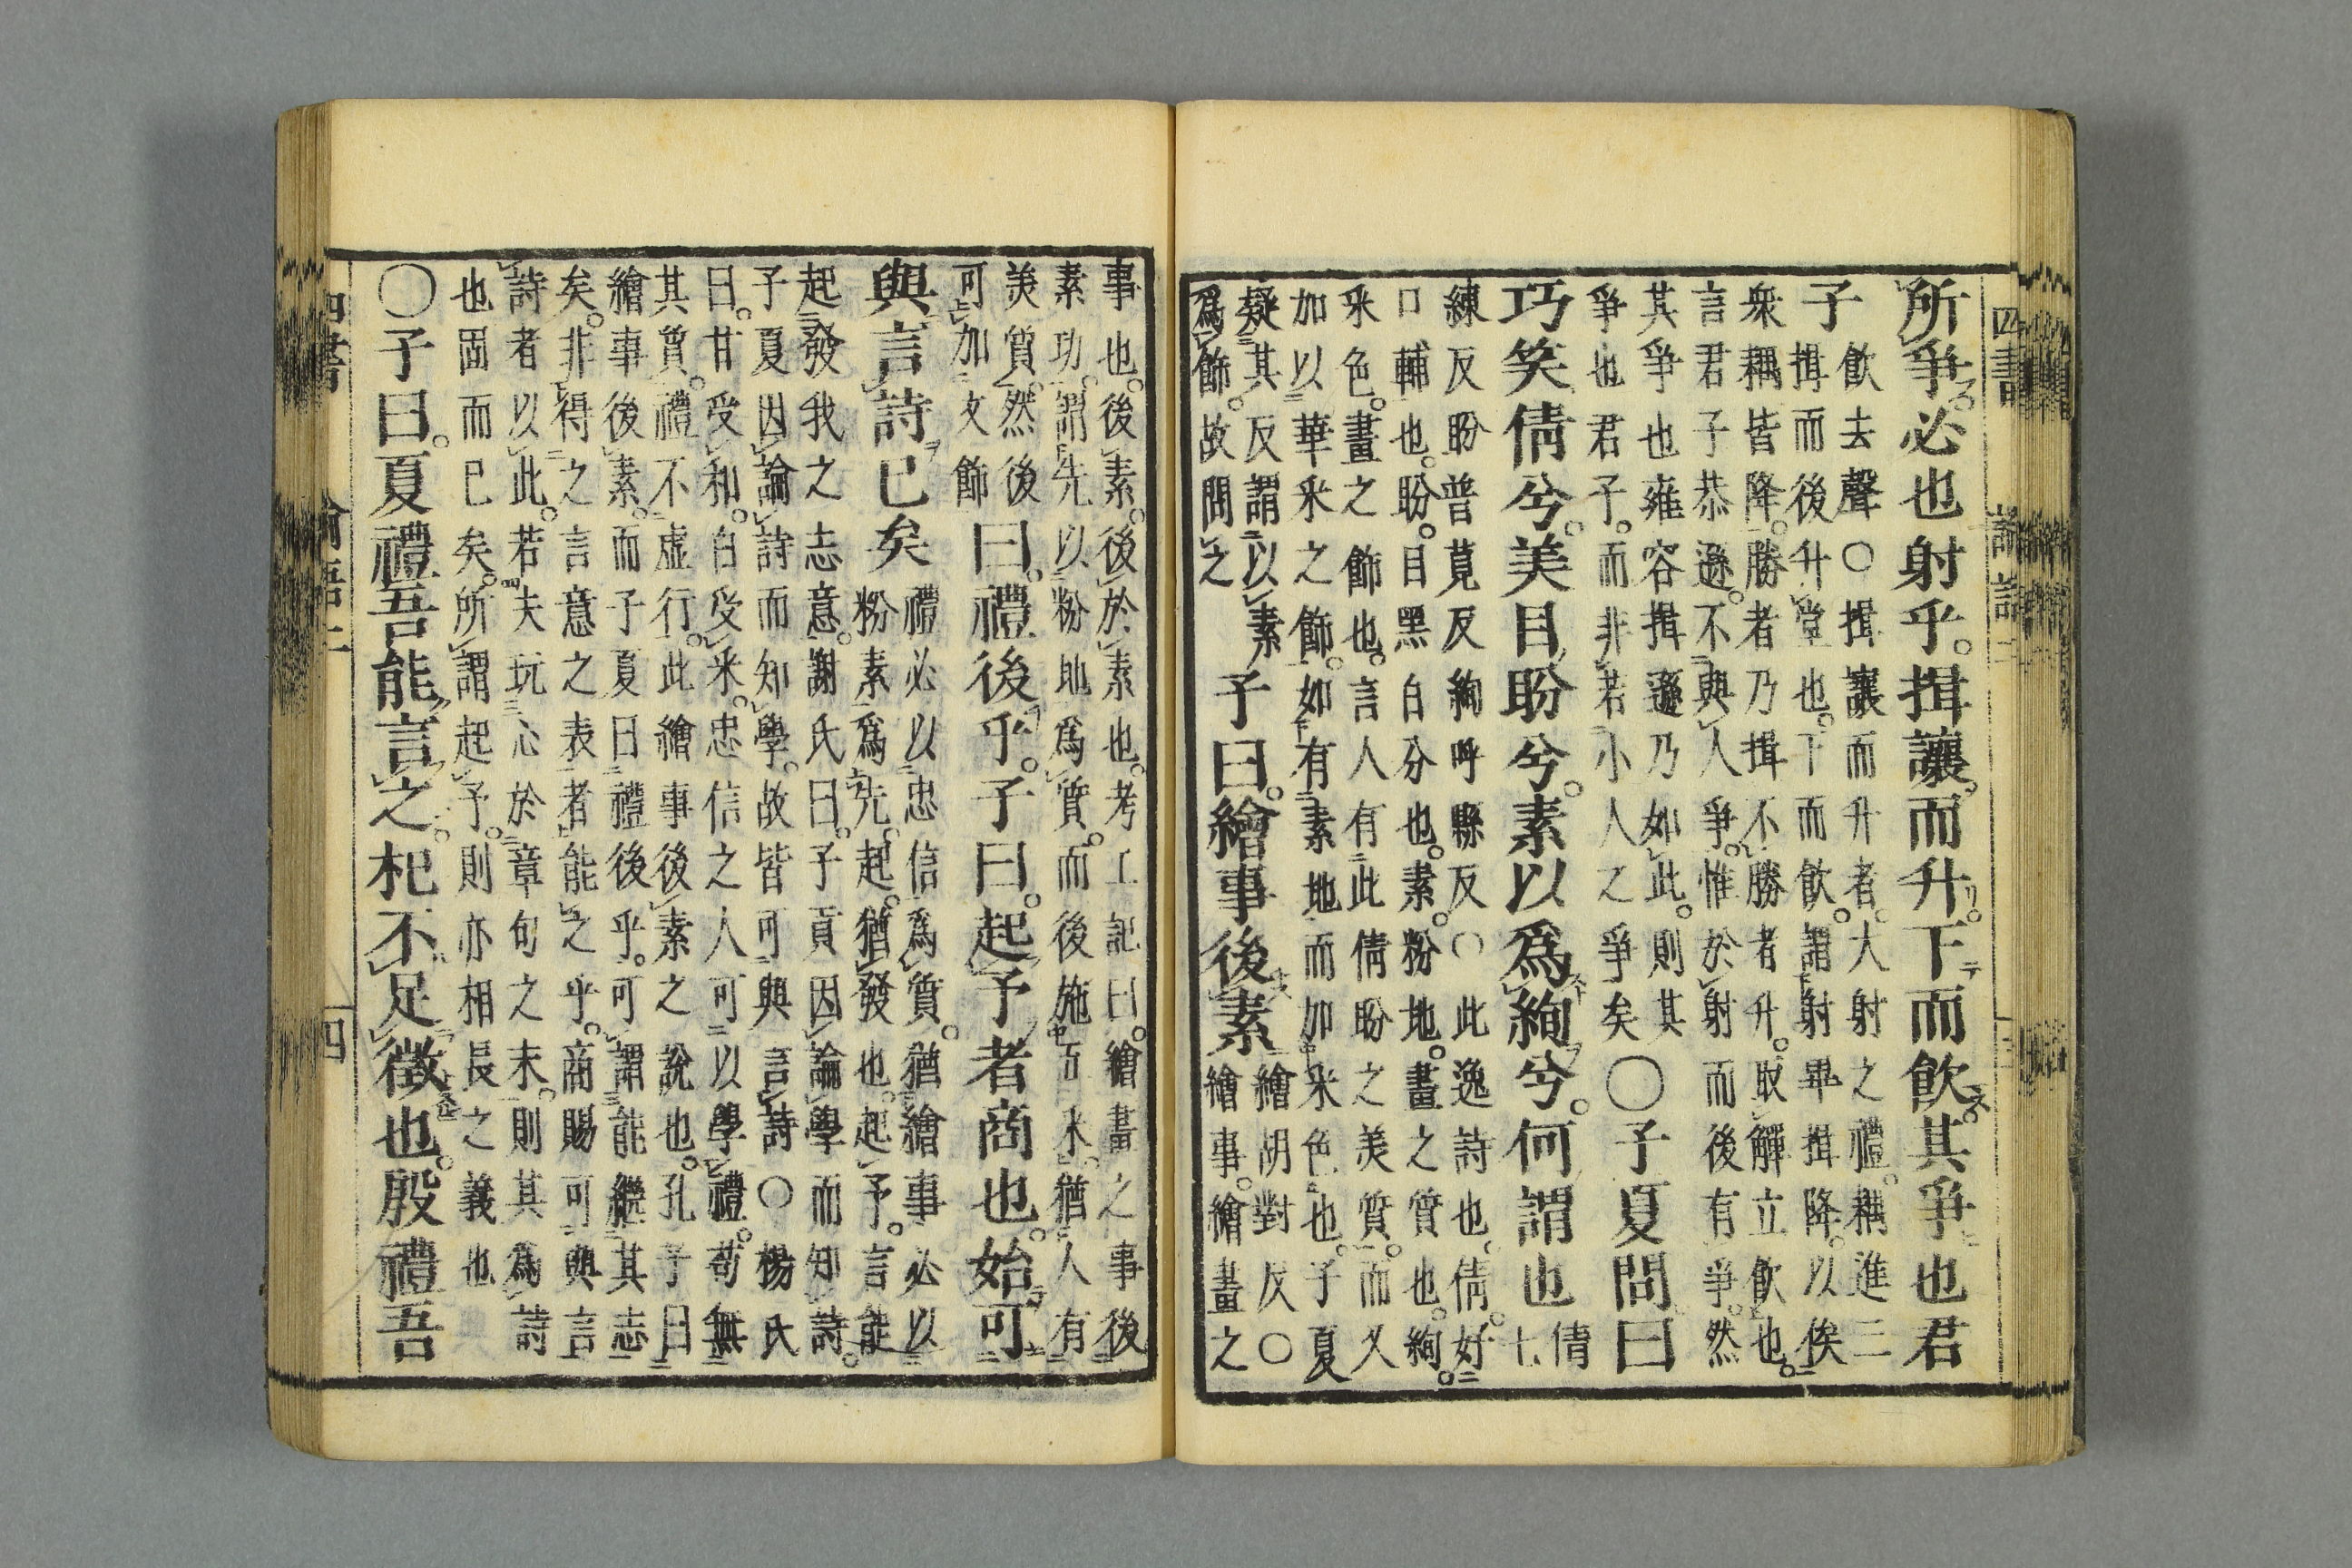 四書 論語二
所爭。必也射乎。揖讓而升。下而飲。其爭也君
子
飲去聲○揖讓而升者。大射之禮。耦進三
揖而後升堂也。下而飲。謂射畢揖降。以俟
衆耦皆降。勝者乃揖不勝者升。取觶立飲也。
言君子恭遜。不與人爭。惟於射而後有爭。然
其爭也雍容揖遜乃如此。則其
爭也君子。而非若小人之爭矣
○子夏問曰
巧笑倩兮。美目盼兮。素以爲絢兮。何謂也
倩七
練反盼普莧反絢呼縣反○此逸詩也。倩。好
口輔也。盼。目黑白分也。素。粉地。畫之質也。絢。
采色。畫之飾也。言人有此倩盼之美質。而又
加以華采之飾。如有素地而加采色也。子夏
疑其反謂以素
爲飾。故問之
子曰。繪事後素
繪胡對反○
繪事。繪畫之
事也。後素。後於素也。考工記曰。繪畫之事後
素功。謂先以粉地爲質。而後施五采。猶人有
美質。然後
可加文飾
曰。禮後乎。子曰。起予者商也。始可
與言詩已矣
禮必以忠信爲質。猶繪事必以
粉素爲先。起。猶發也。起予。言能
起發我之志意。謝氏曰。子貢因論學而知詩。
子夏因論詩而知學。故皆可與言詩○楊氏
曰。甘受和。白受采。忠信之人可以學禮。苟無
其質。禮不虛行。此繪事後素之說也。孔子曰
繪事後素。而子夏曰禮後乎。可謂能繼其志
矣。非得之言意之表者能之乎。商賜可與言
詩者以此。若夫玩心於章句之末。則其爲詩
也固而已矣。所謂起予。則亦相長之義也
○子曰。夏禮吾能言之。杞不足徵也。殷禮吾
四書 論語二 四